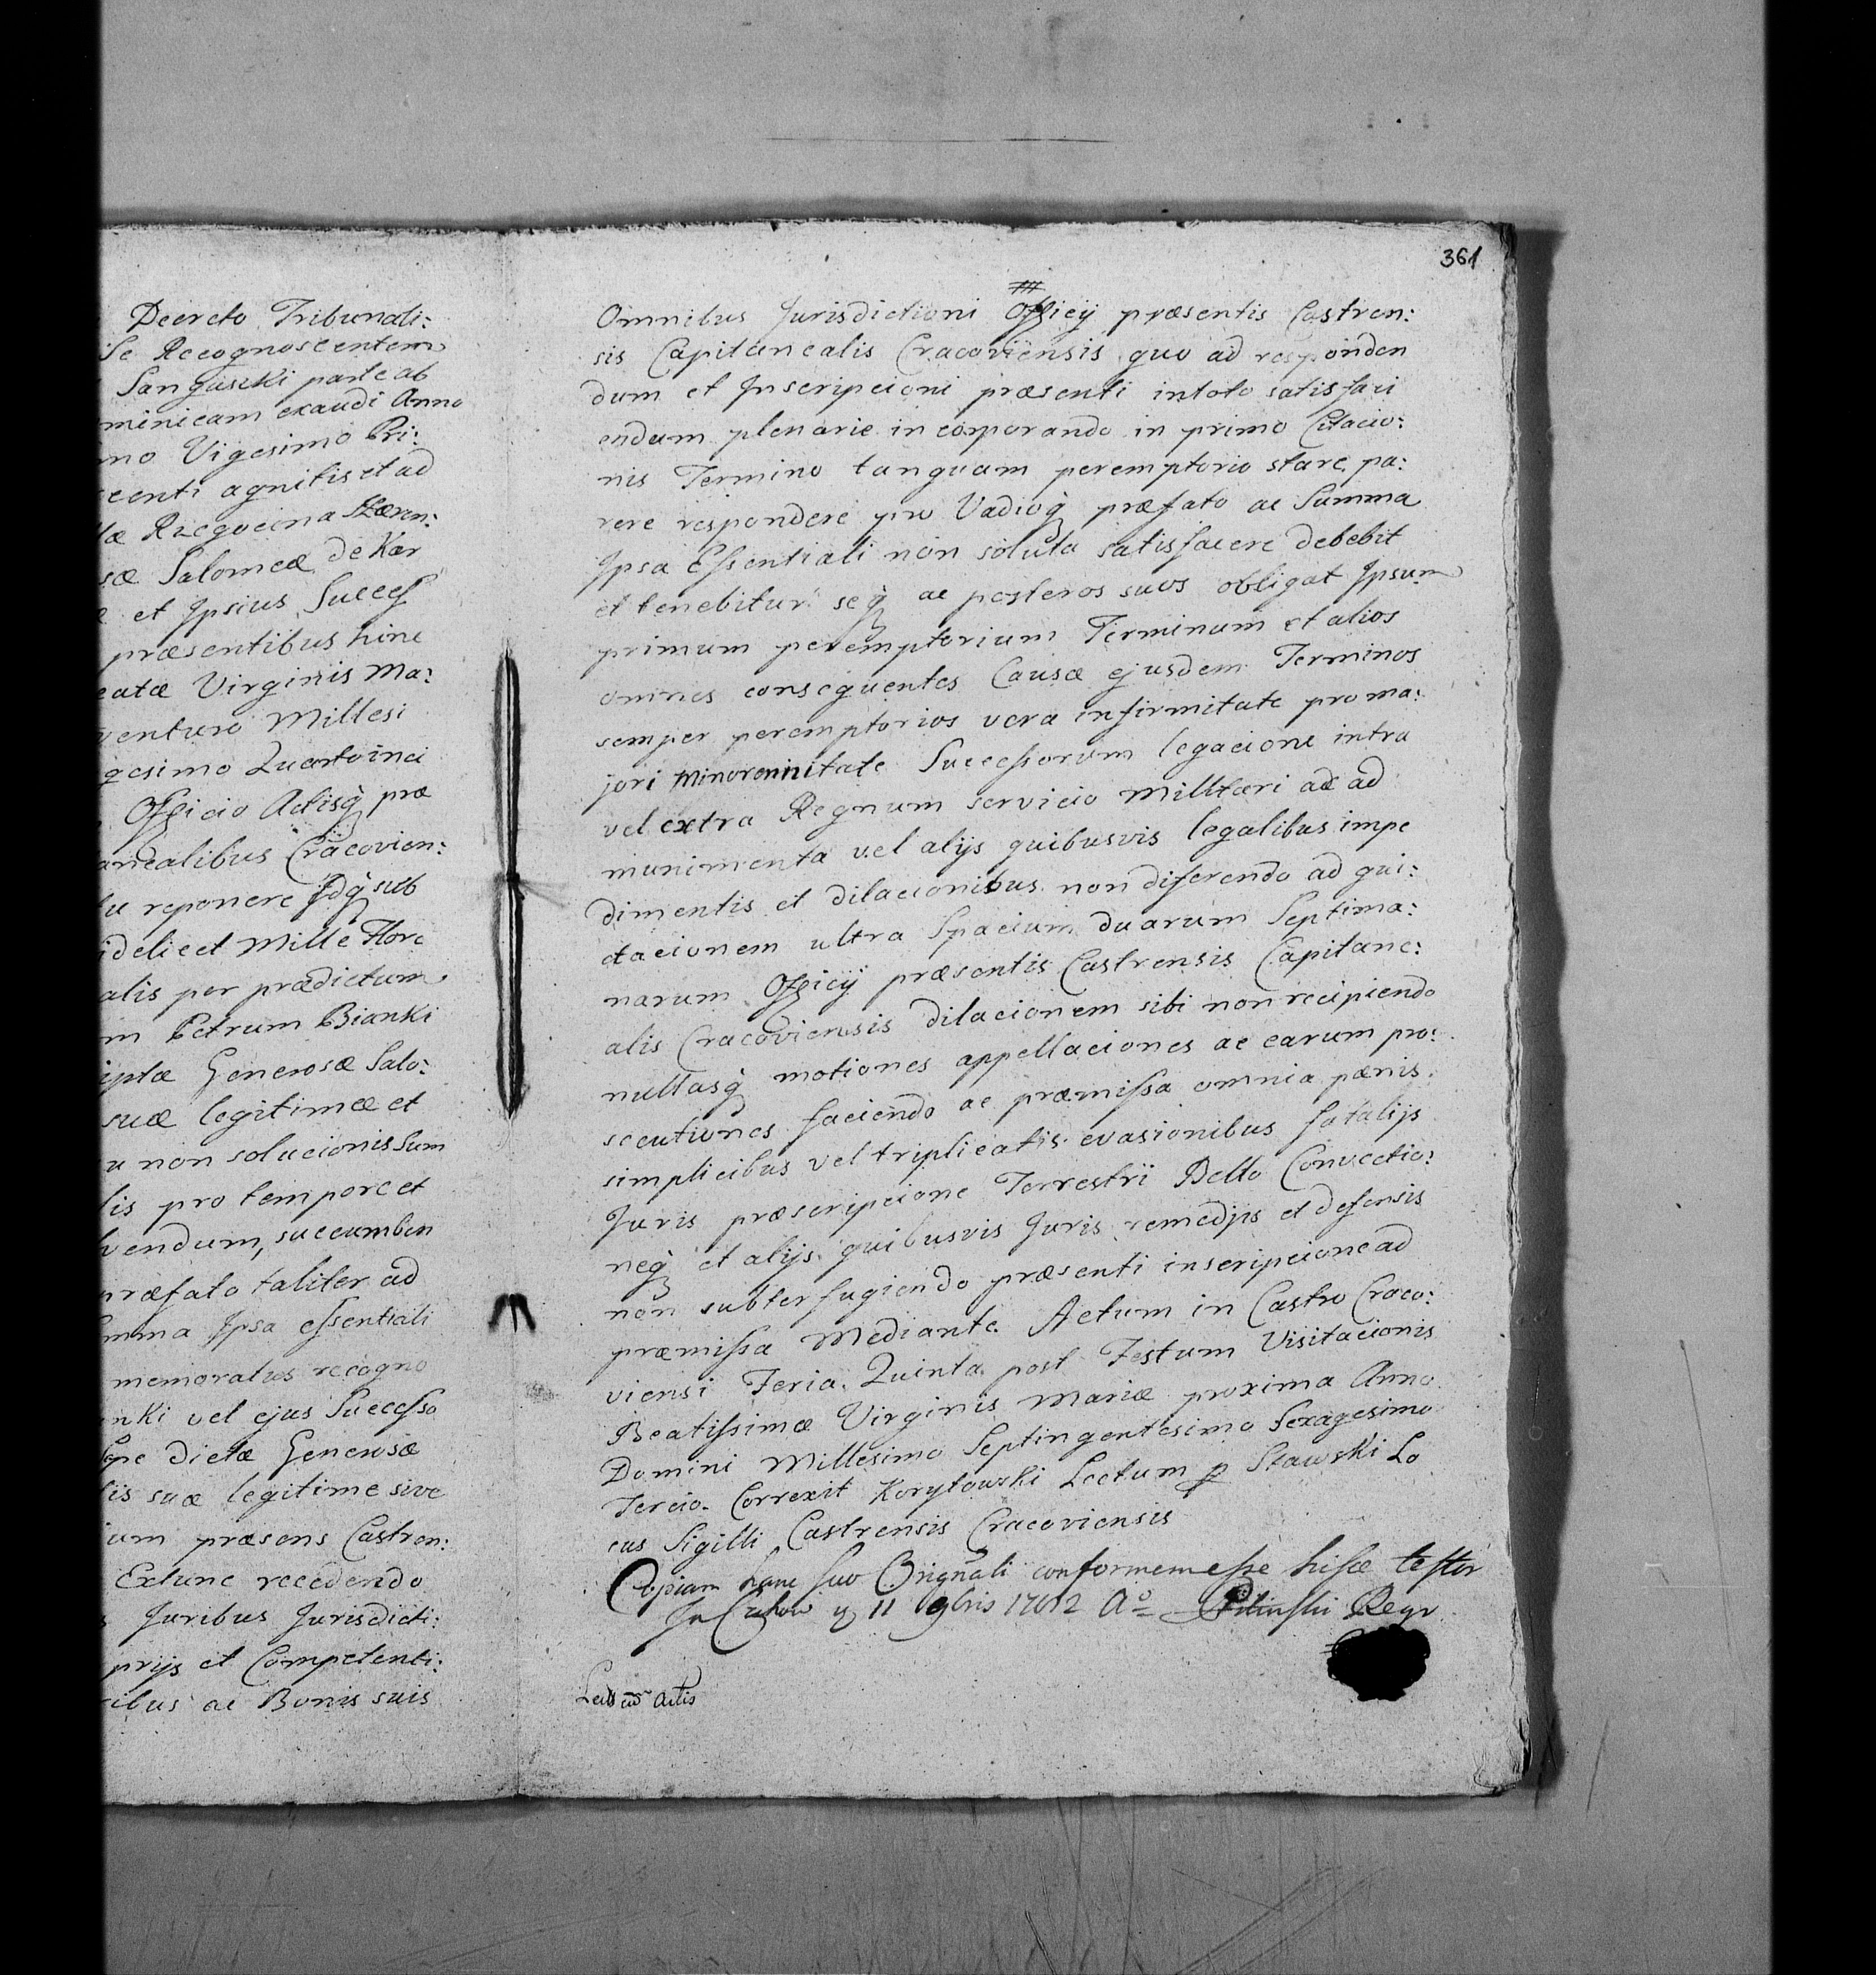 Decreto Tribunali:
Se Recognoscentem
Sanguszki parte ab
minicam exaudi Anno
mo Vigesimo Pri:
centi agnitis et ad
Salomeæ de Kar
et Ipsius Success
præsentibus hinc
eatæ Virginis Ma:
venturo Millesi
gesimo Quarto inci
Officio Actisq præ
anealibus Cracovien:
reponere Idq sub
idelicet Mille Flore
alis per prædictum
m Petrum Bianki
iptæ Generosæ Salo:
suæ legitimæ et
u non solucionis Sum
lis pro tempore et
vendum, succumben
præfato taliter ad
mma Ipsa essentiali
memoratus recogno
nki vel ejus Successo
dictæ Generosæ
lis suæ legitime sive
ium præsens Castren:
Extunc recedendo
s Juribus Jurisdicti:
prijs et Competenti:
ibus ac Bonis suis
361
Omnibus Jurisdictioni Officij præsentis Castren:
sis Capitanealis Cracoviensis quo ad responden
dum et Inscripcioni præsenti intoto satisfaci
endum plenarie incorporando in primo Citacio:
nis Termino tanquam peremptorio stare, pa:
rere respondere pro Vadioq præfato ac Summa
Ipsa Essentiali non soluta satisfacere debebit
et tenebitur seq ac posteros suos obligat Ipsum
primum peremptorium Terminum et alios
omnes consequentes Causæ ejusdem Terminos
semper peremptorios vera infirmitate pro ma:
jori minorennitate Successorum legacione intra
vel extra Regnum servicio Militari ac ad
munimenta vel alijs quibusvis legalibus impe
dimentis et dilacionibus non diferendo ad qui:
etacionem ultra Spacium duarum Septima:
narum Officij præsentis Castrensis Capitane:
alis Cracoviensis dilacionem sibi non recipiendo
nullasq motiones appellaciones ac earum pro:
secutiones faciendo ac præmissa omnia pænis
simplicibus vel triplicatis evasionibus fatalijs
Juris præscripcione Terrestri Bello Convectio:
neq et alijs quibusvis Juris remedijs et defensis
non subterfugiendo præsenti inscripcione ad
præmissa Mediante. Actum in Castro Craco:
viensi Feria Quinta post Festum Visitacionis
Beatissimæ Virginis Mariæ proxima Anno
Domini Millesimo Septingentesimo Sexagesimo
Tercio. Correxit Korytowski Lectum p Stawski Lo
cus Sigilli Castrensis Cracoviensis
Copiam hanc suo Originali conformem esse hisce testor
11 9bris 1762 Aº Regr
Actis